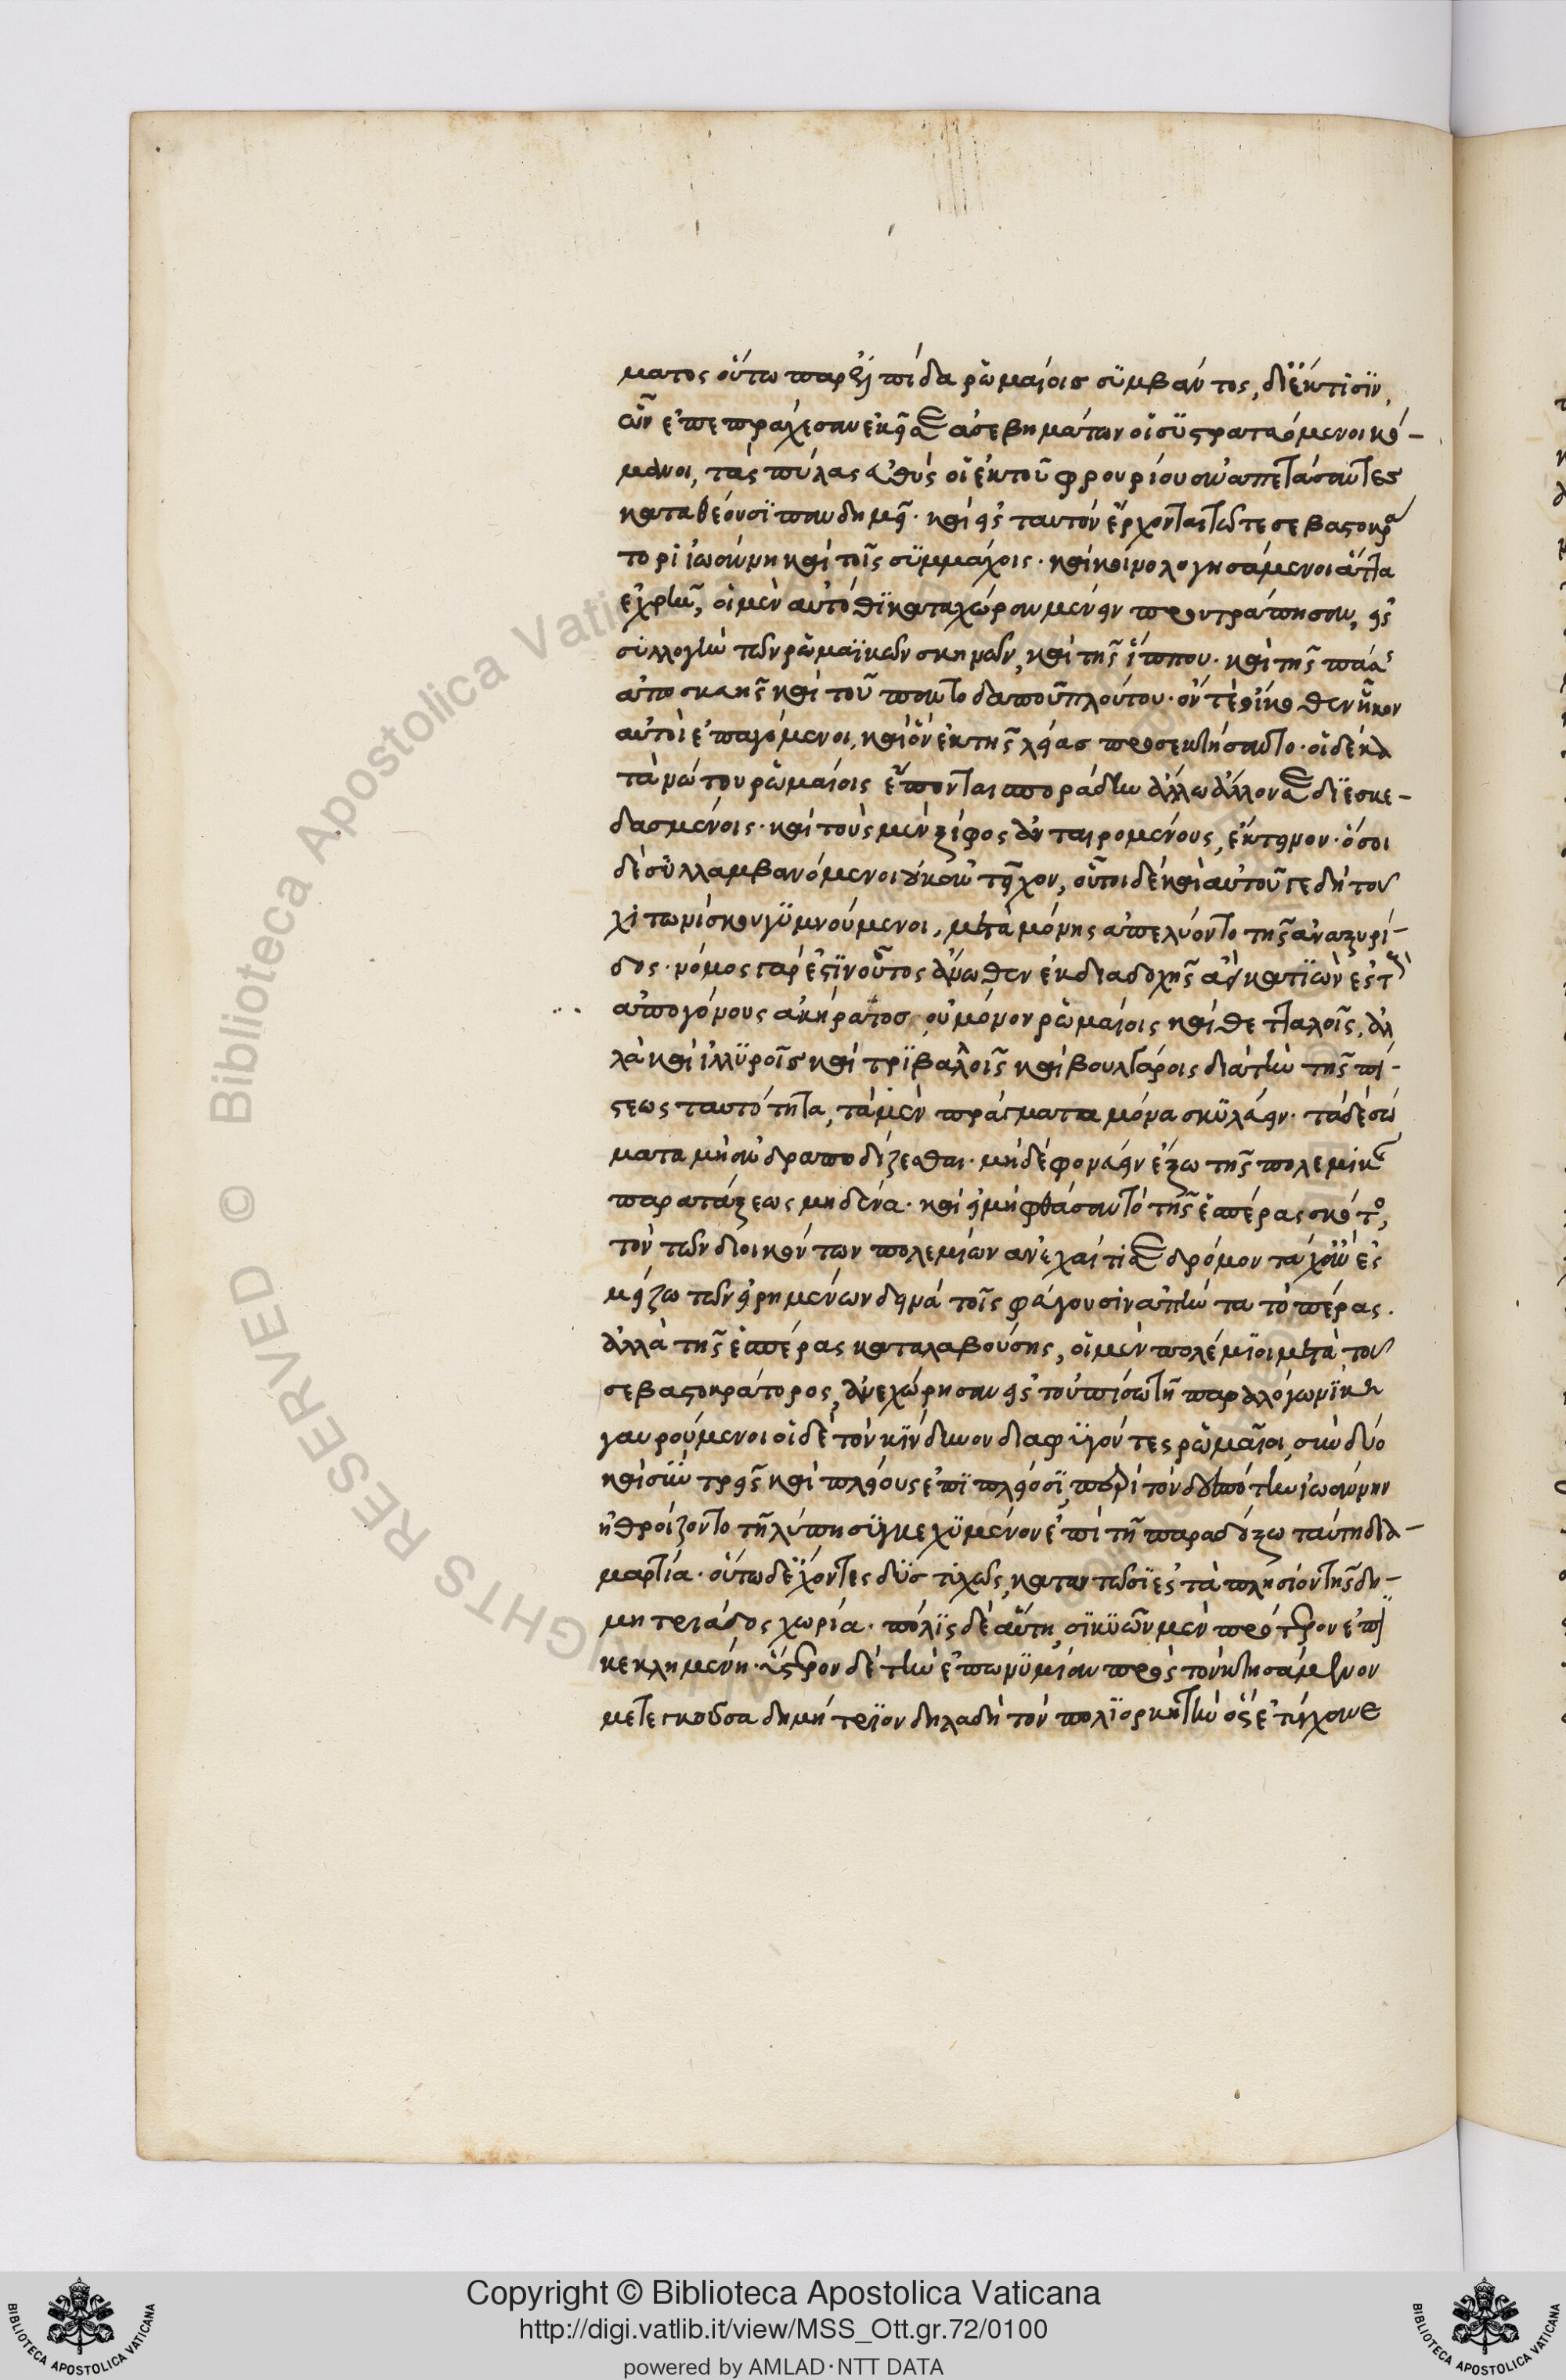 ματος οὕτω παρ' ἐλπίδα ῥωμαίοις συμβάντος, δι' ἔκτισιν,
ὧν ἐπεπράχεσαν ἐκεῖσε ἀσεβημάτων οἱ συστρατευόμενοι κό-
μανοι, τὰς πύλας εὐθὺς οἱ ἐκ τοῦ φρουρίου ἀναπετάσαντες
καταθέουσι πανδημεῖ. καὶ εἰς ταυτὸν ἔρχονται τῶ τε σεβαστοκρά
τορι ἰωάννη καὶ τοῖς συμμάχοις. καὶ κοινολογησάμενοι ἅττα
ἐχρῆν, οἱ μὲν αὐτόθι κατὰ χώραν μένειν προυτράπησαν, εἰς
συλλογὴν τῶν ῥωμαϊκῶν σκηνῶν, καὶ τῆς ἵππου. καὶ τῆς πάσης
ἀποσκευῆς καὶ τοῦ παντοδαποῦ πλούτου. ὅν τε οἴκοθεν ἧκον
αὐτοὶ ἐπαγόμενοι, καὶ ὃν ἐκ τῆς λείας προσεκτήσαντο. οἱ δὲ κα
τὰ νώτου ῥωμαίοις ἕπονται σποράδην ἄλλω ἄλλοσε διεσκε-
δασμένοις. καὶ τοὺς μὲν ξίφος ἀνταιρομένους, ἔκτεινον. ὅσοι
δὲ συλλαμβανόμενοι οὐκ ἀντεῖχον, οὗτοι δὲ καὶ αὐτοῦ γε δὴ τοῦ
χιτωνίσκου γυμνούμενοι, μετὰ μόνης ἀπελύοντο τῆς ἀναξυρί-
δος. νόμος γάρ ἐστιν οὗτος ἄνωθεν ἐκ διαδοχῆς ἀεὶ κατιὼν ἐς τοὺς
ἀπογόνους ἀκήρατος οὐ μόνον ῥωμαίοις καὶ θετταλοῖς, ἀλ
λὰ καὶ ἰλλυριοῖς καὶ τριβαλλοῖς καὶ βουλγάροις διὰ τὴν τῆς πί-
στεως ταυτότητα, τὰ μὲν πράγματα μόνα σκυλεύειν. τὰ δὲ σώ
ματα μὴ ἀνδραποδίζεσθαι. μὴ δὲ φονεύειν ἔξω τῆς πολεμικῆς
παρατάξεως μηδένα. καὶ εἰ μὴ φθάσαν τὸ τῆς ἑσπέρας σκότος,
τὸν τῶν διωκόντων πολεμίων ἀνεχαίτισε δρόμον τάχ' ἂν ἐς
μείζω τῶν εἰρημένων δεινὰ τοῖς φεύγουσιν ἀπήντα τὸ πέρας.
ἀλλὰ τῆς ἑσπέρας καταλαβούσης, οἱ μὲν πολέμιοι μετὰ τοῦ
σεβαστοκράτορος, ἀνεχώρησαν εἰς τοὐπίσω τῆ παραλόγω νίκη
γαυρούμενοι οἱ δὲ τὸν κίνδυνον διαφυγόντες ῥωμαῖοι, σὺν δύο
καὶ σὺν τρεῖς καὶ πλείους ἐπὶ πλείοσι, περὶ τὸν δεσπότην ἰωάννην
ἠθροίζοντο τῆ λύπη συγκεχυμένον ἐπὶ τῆ παραδόξω ταύτη δια-
μαρτία. οὕτω δ' ἔχοντες δυστυχῶς, καταντῶσιν ἐς τὰ πλησίον τῆς δη-
μητριάδος χωρία. πόλις δὲ αὕτη, σικυῶν μὲν πρότερον ἐπι
κεκλημένη. ὕστερον δὲ τὴν ἐπωνυμίαν πρὸς τὸν κτησάμενον
μετεγκοῦσα δημήτριον δηλαδὴ τὸν πολιορκητὴν ὃς ἐτύγχανε